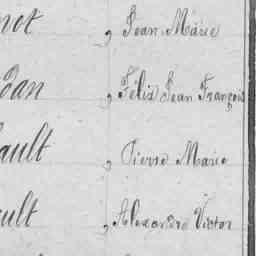 not , Jean Marie
dan , Félix Jean François
ault , Pierre Marie
ult , Alexandre Victor